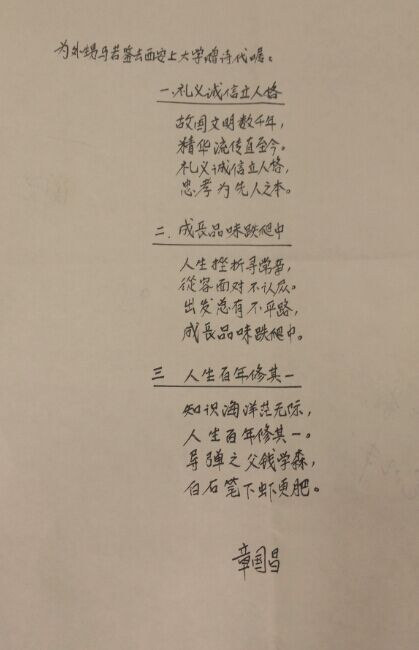 为外甥马若鉴去西安上大学赠诗代嘱。
一.礼义诚信立人格
故国文明数千年，
精华流传直至今。
礼义诚信立人格，
忠孝为先人之本。
二.成長品味跌爬中
人生挫折寻常事，
從容面对不认怂。
出发总有不平路，
成長品味跌爬中。
三 人生百年修其一
知识海洋茫无际，
人生百年修其一。
导弹之父钱学森，
白石笔下虾更肥。
章国昌